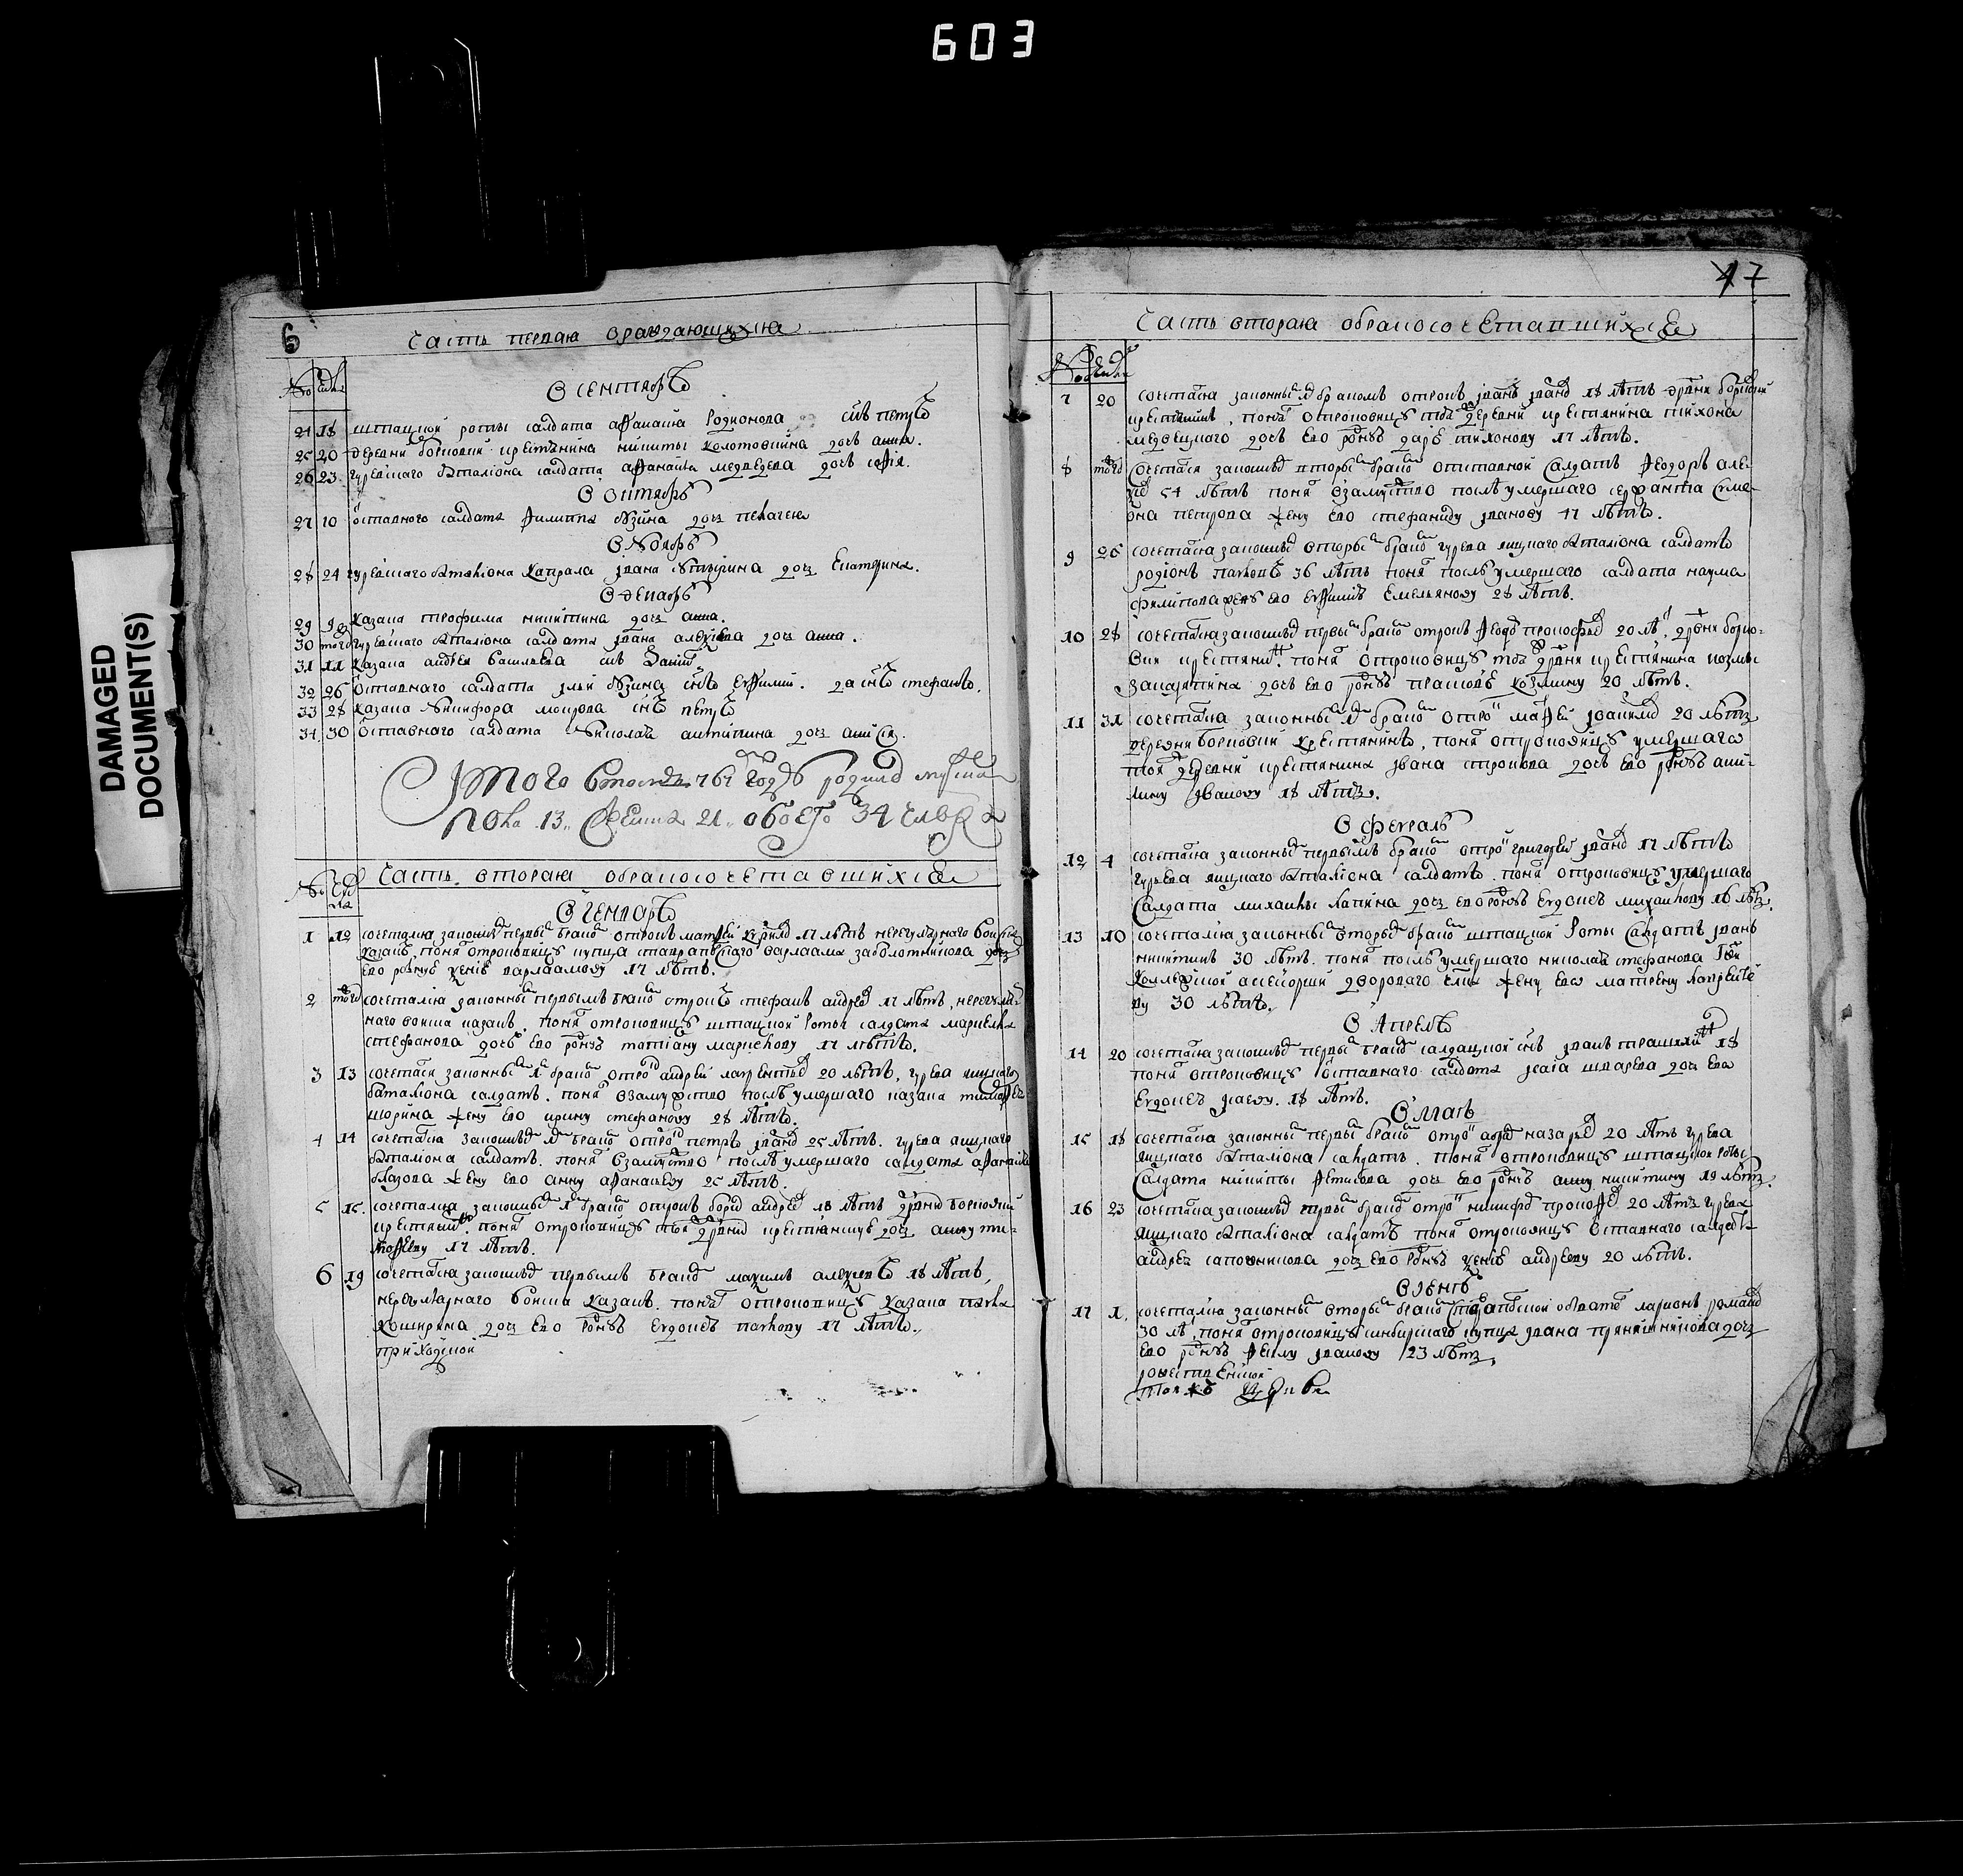 603
DAMAGED
DOCUMENT(S)
6
Часть первая о раждающихся
№ числа
В сентябрѣ
24 18 штацкой роты салдата афанасья родионова сынъ петръ
25 20 деревни борковки крестьянина никиты колотовкина дочь анна.
26 23 гурьевскаго баталіона салдата афанасья медведева дочь софія.
В октябрѣ
27 10 отставного салдата филиппа кузина дочь пелагея
В ноябрѣ
28 24 гурьевскаго баталіона капрала ивана дочь екатерина.
В декабрѣ
29 9 казака трофима никитина дочь анна.
30 того гурьевскаго баталіона салдата ивана алексѣева дочь анна.
31 11 казака андрея васильева сынъ даниилъ
32 26 отставнаго салдата ильи кузина сынъ евфимий. 2й сынъ стефанъ.
33 28 казака никифора сынъ петръ
34 30 отставнаго салдата николая антипина дочь анисія.
Итого в 767 годѣ родилось мужска
пола 13. женска 21. обоего 34 человека
№ числа Часть вторая о бракосочетавшихся
В генварѣ
1 12 сочетался законнымъ первымъ бракомъ отрокъ матфей 17 лѣтъ нерегулярнаго войска
казакъ, понялъ отроковицу купца ставропольскаго варлаама заболотникова дочь
ево родную ксенію варлаамову 17 лѣтъ.
2 того сочетался законнымъ первымъ бракомъ отрокъ стефанъ андреевъ 17 лѣтъ, нерегуляр-
наго войска казакъ. понялъ отроковицу штацкой роты салдата маркелла
стефанова дочь ево родную татіану маркелову 17 лѣтъ.
3 13 сочетался законнымъ 1мъ бракомъ отрокъ андрей лаврентьевъ 20 лѣтъ, гурьева яицкаго
баталіона салдатъ. понялъ взамужство послѣ умершаго казака
жену ево ирину стефанову 28 лѣтъ.
4 14 сочетался законнымъ 1мъ бракомъ отрокъ петръ ивановъ 25 лѣтъ. гурьева яицкаго
баталіона салдатъ. понялъ взамужство послѣ умершаго салдата афанасья
жену ево анну афанасьеву 25 лѣтъ.
5 15 сочетался законнымъ 1мъ бракомъ отрокъ борисъ андреевъ 18 лѣтъ деревни борковки
крестьянинъ. понялъ отроковицу той деревни крестьянскую дочь анну ти-
мофееву 17 лѣтъ.
6 19 сочетался законнымъ первымъ бракомъ максимъ алексѣевъ 18 лѣтъ,
нерегулярнаго войска казакъ. понялъ отроковицу казака павла
каширина дочь ево родную евдокію павлову 17 лѣтъ.
приходской
47
Часть вторая о бракосочетавшихся
№ числа
7 20 сочетался законнымъ 1мъ бракомъ отрокъ иванъ ивановъ 18 лѣтъ деревни борковки
крестьянинъ, понялъ отроковицу той деревни крестьянина тихона
медвецкаго дочь ево родную дарью тихонову 17 лѣтъ.
8 того сочетался законнымъ вторымъ бракомъ отставной салдатъ феодоръ алек-
сѣевъ 54 лѣтъ понялъ взамужство послѣ умершаго сержанта симе-
она петрова жену ево стефаниду иванову 47 лѣтъ.
9 26 сочетался законнымъ вторымъ бракомъ гурьева яицкаго баталіона салдатъ
родіонъ павловъ 36 лѣтъ понялъ послѣ умершаго салдата наума
филипова жену ево евфимію емельянову 28 лѣтъ.
10 28 сочетался законнымъ первымъ бракомъ отрокъ феодоръ прокофьевъ 20 лѣтъ, деревни борко-
вки крестьянинъ. понялъ отроковицу той деревни крестьянина козмы
дочь ево родную прасковью козмину 20 лѣтъ.
11 31 сочетался законнымъ 1мъ бракомъ отрокъ матфей 20 лѣтъ
деревни борковки крестьянинъ, понялъ отроковицу умершаго
той деревни крестьянина ивана строкова дочь ево родную аки-
лину иванову 18 лѣтъ.
В февралѣ
12 4 сочетался законнымъ первымъ бракомъ отрокъ григорей ивановъ 17 лѣтъ
гурьева яицкаго баталіона салдатъ. понялъ отроковицу умершаго
салдата михаилы лапина дочь ево родную евдокію михаилову 16 лѣтъ.
13 10 сочетался законнымъ вторымъ бракомъ штацкой роты салдатъ иванъ
никитинъ 30 лѣтъ. понялъ послѣ умершаго николая стефанова
коллежской асесорши дворового жену ево матрену лаврентье-
ву 30 лѣтъ.
В апрелѣ
14 20 сочетался законнымъ первымъ бракомъ салдацкой сынъ иванъ 18
понялъ отроковицу отставнаго салдата исаіа шварева дочь ево
евдокію исаеву. 18 лѣтъ.
В маѣ
15 18 сочетался законнымъ первымъ бракомъ отрокъ назарьевъ 20 лѣтъ гурьева
яицкаго баталіона салдатъ. понялъ отроковицу штацкой роты
салдата никиты фетисова дочь ево родную анну никитину 19 лѣтъ.
16 23 сочетался законнымъ первымъ бракомъ отрокъ никифоръ прокофьевъ 20 лѣтъ гурьева
яицкаго баталіона салдатъ понялъ отроковицу отставнаго салдата
андрея сапожникова дочь ево родную ксенію андрееву 20 лѣтъ.
В іюнѣ
17 1. сочетался законнымъ вторымъ бракомъ ларионъ романовъ
30 лѣтъ, понялъ отроковицу синбирскаго купца ивана прянишникова дочь
ево родную феклу иванову 23 лѣтъ.
рожественской
той же церкви